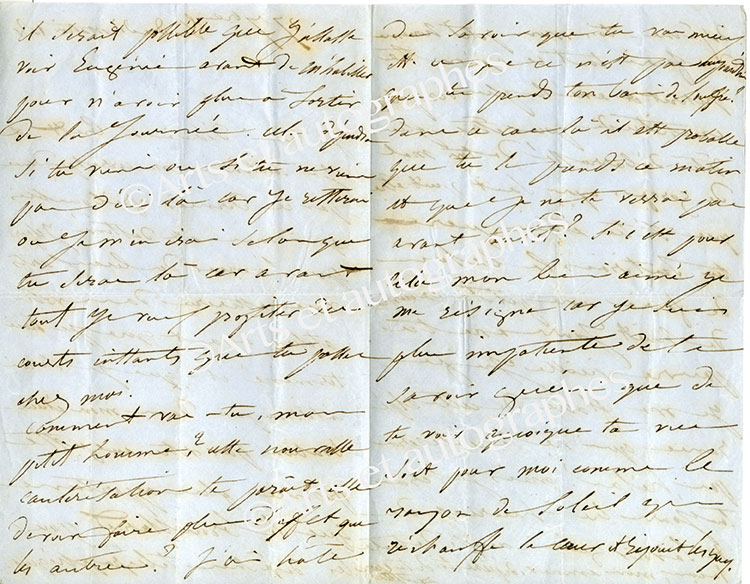 il serait possible que j'allasse
voir Eugénie avant de m'habiller
pour n'avoir plus a sortir
de la journée. et.
si tu viens ou si tu ne viens
pas d'ici là car je resterai
ou je m'en irai selon que
tu seras là car avant
tout je veux profiter des
courts instants que tu passes
chez moi.
comment vas-tu, mon
p'tit homme? cette nouvelle
cautérisation te parait-elle
devoir faire plus d'effet que
les autres? j'ai hâte
de savoir que tu vas mieux
et que ce n'est pas aujourd'hui
que tu prends ton bain de
dans ce cas là il est probable
que tu le prends ce matin
et que je ne te verrai pas
avant si c'est pour
cela mon bien aimé je
me résigne car je suis
plus impatiente de te
savoir guéri que de
te voir quoique ta vue
soit pour moi comme le
rayon de soleil qui
réchauffe le cœur et réjouit les yeux.
© Arts et autographes
Arts et autographes
Arts et autographes